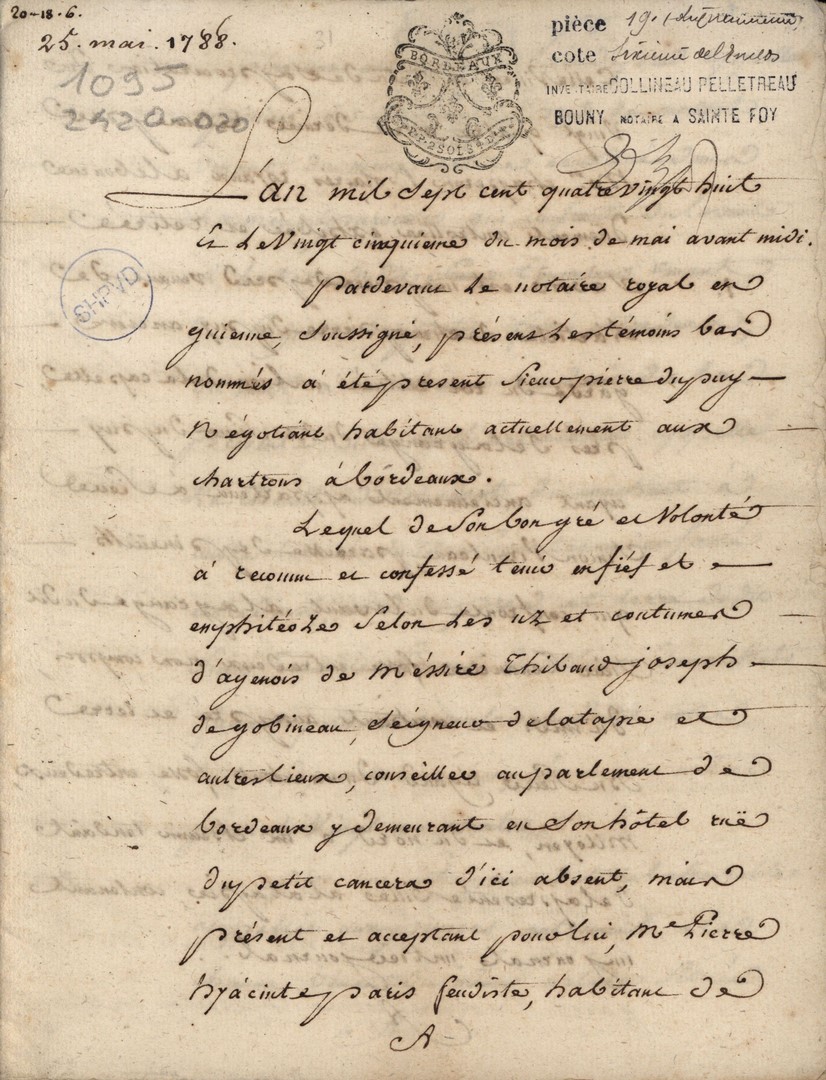 20-18-6.
25. mai. 1788.
1095
2420-020
BORDEAUX
pièce 19e
cote Sixieme de l'Enclos
INVENTAIRE COLLINEAU PELLETREAU
BOUNY NOTAIRE A SAINTE FOY
SHPVD
L'an mil Sept cent quatre vingt huit
Et Le Vingt cinquieme du mois de mai avant midi.
pardevant Le notaire royal en
guienne, Soussigné, présens Les témoins bas
nommés à été present Sieur pierre dupuy
Négotiant habitant actuellement aux
chartrons à bordeaux.
Lequel de Son bon gré et Volonté
à reconnu et confessé tenir en fief et
emphitéoze Selon Les uz et coutumes
d'agenois de Méssire Thibaud joseph
de gobineau, Seigneur de latapie et
autres lieux, conseiller au parlement de
bordeaux y demeurant en Son hôtel ruë
du petit cancera d'ici absent, mais
présent et acceptant pour lui, Me Pierre
hyàcinte paris feudiste, habitant de
A